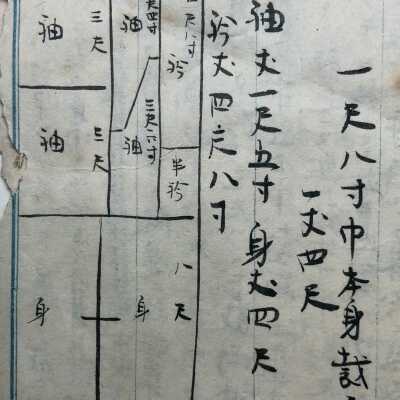 一尺八寸巾本身裁
一丈四尺
袖丈一尺五寸 身丈四尺
衿丈四尺八寸
衿
半衿
八尺
袖
三尺六寸
袖
身
三尺
三尺
袖
袖
身